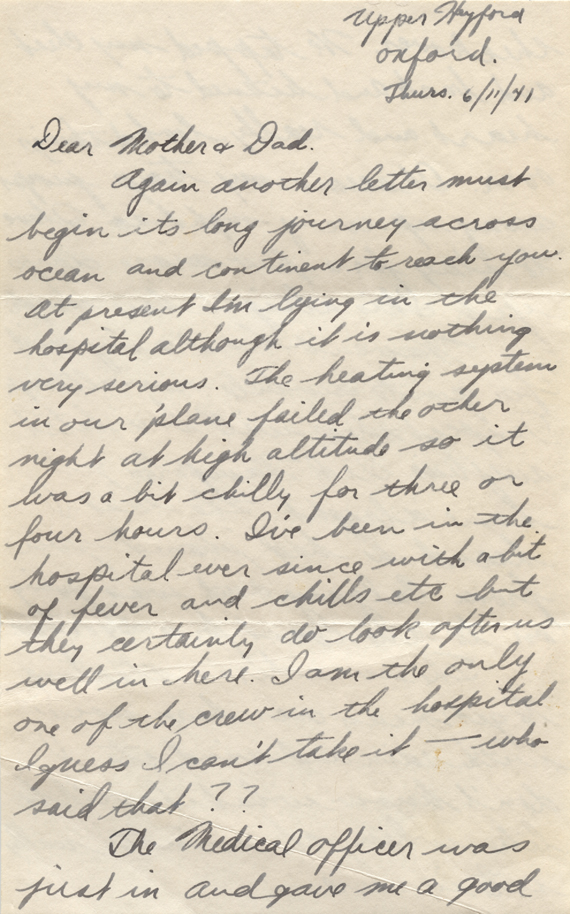 Upper Heyford
Oxford.
Thurs. 6/11/41
Dear Mother & Dad.
Again another letter must
begin its long journey across
ocean and continent to reach you.
At present I'm lying in the
hospital although it is nothing
very serious. The heating system
in our 'plane failed the other
night at high altitude so it
was a bit chilly for three or
four hours. I've been in the
hospital ever since with a bit
of fever and chills etc but
they certainly do look after us
well in here. I am the only
one of the crew in the hospital
I guess I can't take it — who
said that ??
The Medical officer was
just in and gave me a good